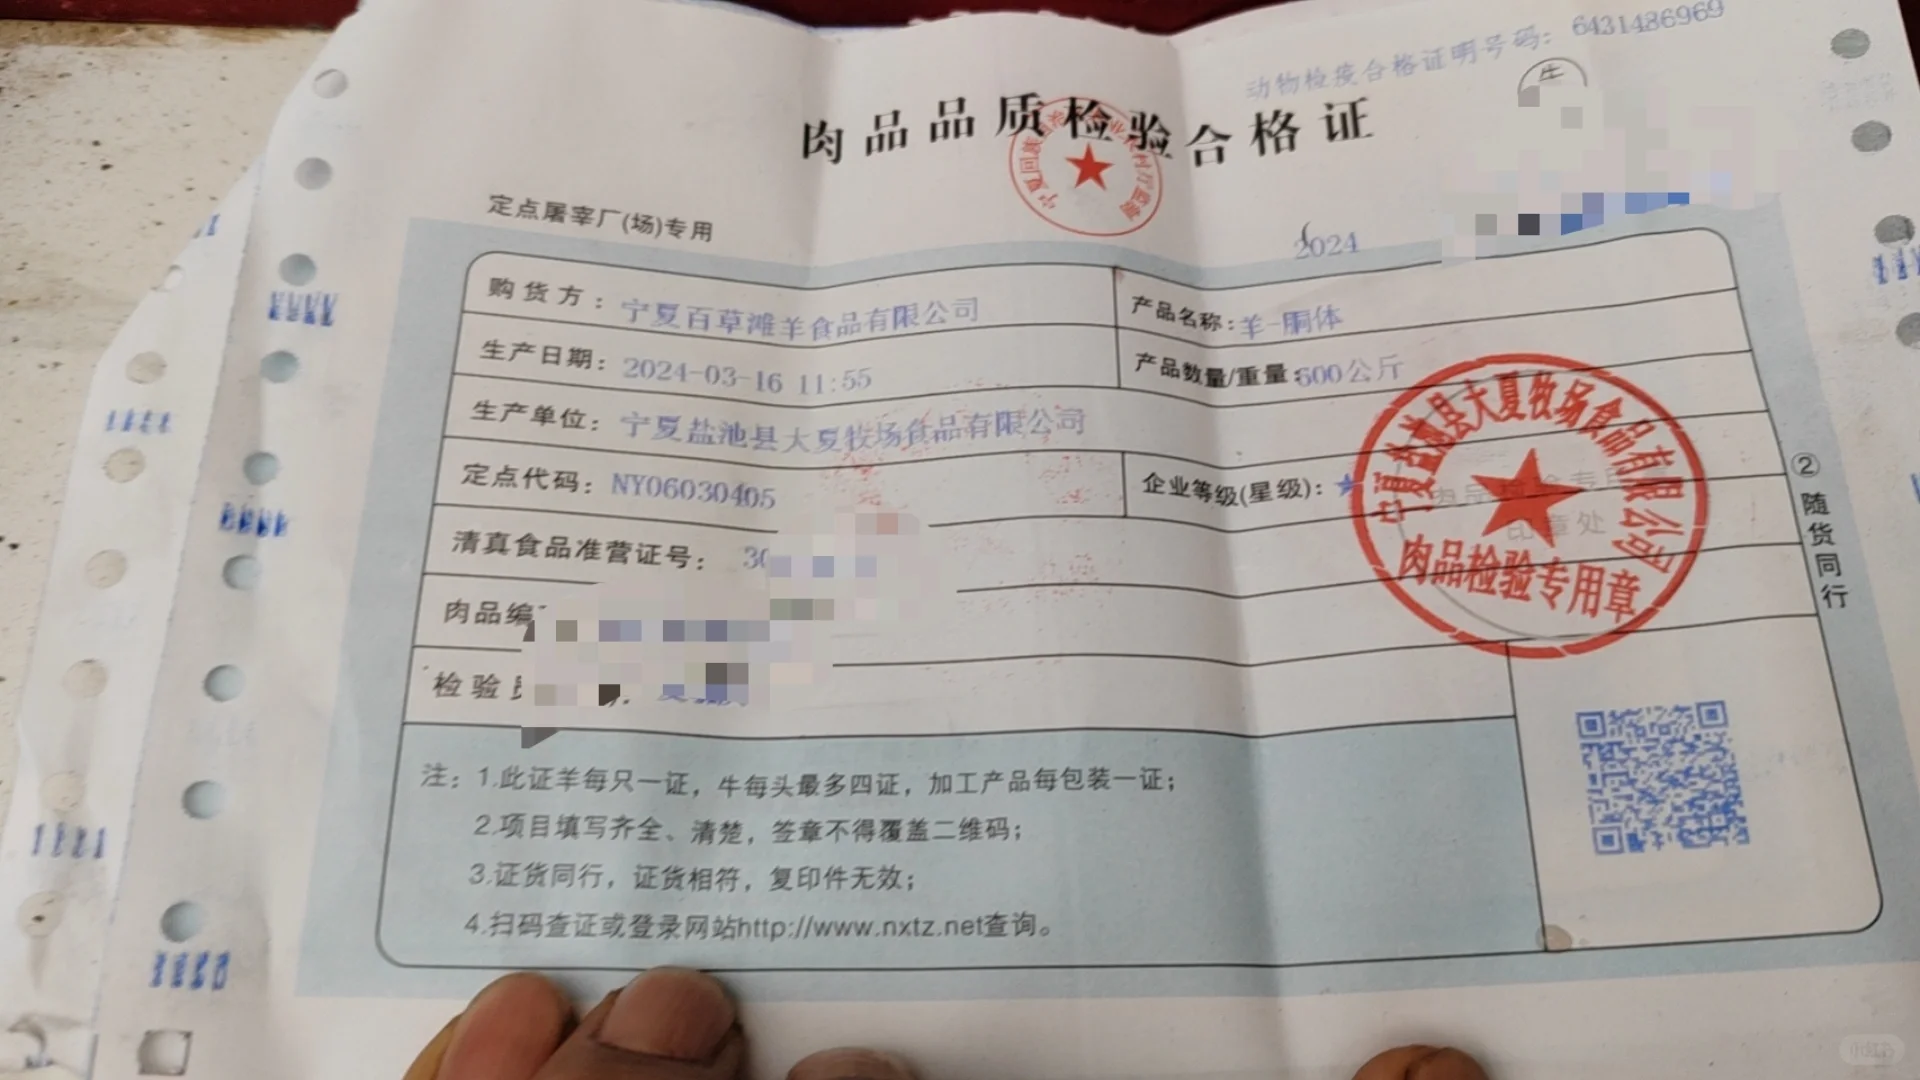 动物检疫合格证明号码：6431486969
牛
肉品品质检验合格证
定点屠宰厂(场)专用
2024
购货方：宁夏百草滩羊食品有限公司
产品名称：羊-胴体
生产日期：2024-03-16 11:55
产品数量/重量：600公斤
生产单位：宁夏盐池县大夏牧场食品有限公司
定点代码：NY06030405
企业等级(星级)：★
宁夏盐池县大夏牧场食品有限公司
肉品检验专用章
印章处
清真食品准营证号：30
肉品编
检验员
②随货同行
注：1.此证羊每只一证，牛每头最多四证，加工产品每包装一证；
2.项目填写齐全、清楚，签章不得覆盖二维码；
3.证货同行，证货相符，复印件无效；
4.扫码查证或登录网站http://www.nxtz.net查询。
小红书